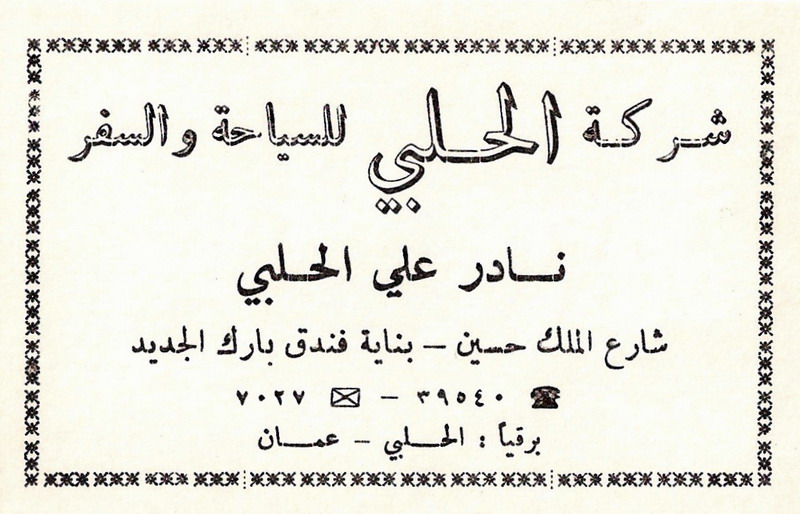 شركة الحلبي للسياحة والسفر
نادر علي الحلبي
شارع الملك حسين – بناية فندق بارك الجديد
☎ ٣٩٥٤٠ – ✉ ٧٠٢٧
برقياً : الحلبي – عمان